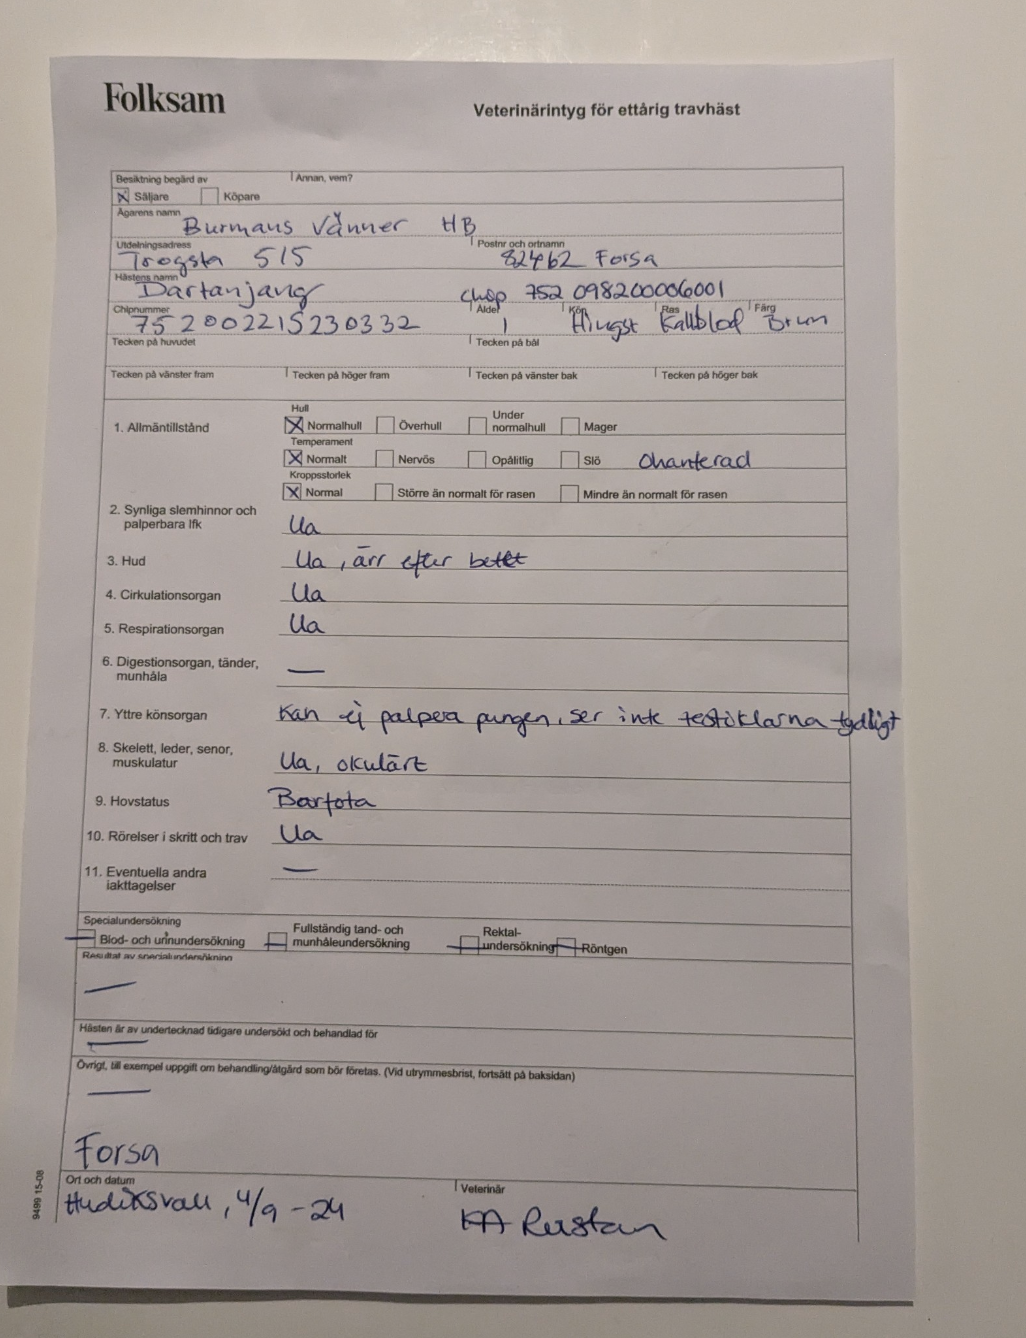 Folksam
Veterinärintyg för ettårig travhäst
Besiktning begärd av
Annan, vem?
Säljare Köpare
Ägarens namn
Burmans Vänner HB
Utdelningsadress Postnr och ortnamn
Trogsta 515 82462 Forsa
Hästens namn
Dartanjang chip 752 098200006001
Chipnummer Ålder Kön Ras Färg
752002215230332 1 Hingst Kallblod Brun
Tecken på huvudet Tecken på bål
Tecken på vänster fram Tecken på höger fram Tecken på vänster bak Tecken på höger bak
1. Allmäntillstånd
Hull
Normalhull Överhull Under normalhull Mager
Temperament
Normalt Nervös Opålitlig Slö Ohanterad
Kroppsstorlek
Normal Större än normalt för rasen Mindre än normalt för rasen
2. Synliga slemhinnor och
palperbara lfk
Ua
3. Hud Ua, ärr efter bettet
4. Cirkulationsorgan Ua
5. Respirationsorgan Ua
6. Digestionsorgan, tänder,
munhåla
—
7. Yttre könsorgan Kan ej palpera pungen, ser inte testiklarna tydligt
8. Skelett, leder, senor,
muskulatur
Ua, okulärt
9. Hovstatus Barfota
10. Rörelser i skritt och trav Ua
11. Eventuella andra
iakttagelser
—
Specialundersökning
Blod- och urinundersökning Fullständig tand- och munhåleundersökning Rektal-undersökning Röntgen
Resultat av specialundersökning
—
Hästen är av undertecknad tidigare undersökt och behandlad för
—
Övrigt, till exempel uppgift om behandling/åtgärd som bör företas. (Vid utrymmesbrist, fortsätt på baksidan)
—
Forsa
Ort och datum Veterinär
Hudiksvall, 4/9 -24 KA Rustan
9499 15-08